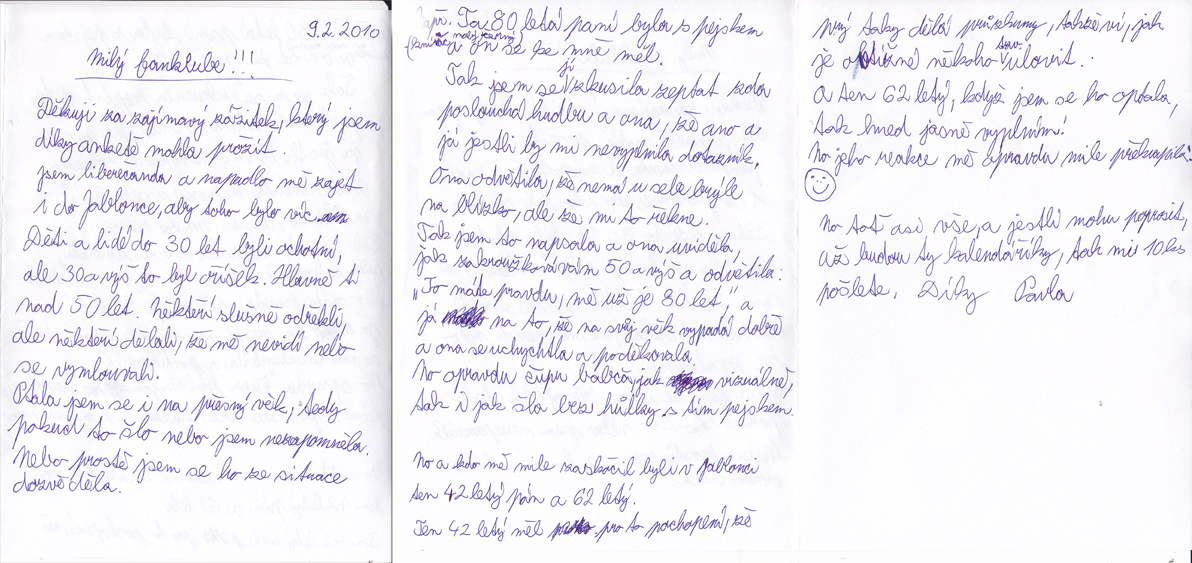 9.2.2010
Milý fanklube!!!
Děkuji za zajímavý zážitek, který jsem
díky anketě mohla prožít.
Jsem liberečanda a napadlo mě zajet
i do Jablonce, aby toho bylo víc
Děti a lidé do 30 let byli ochotní,
ale 30 a výš to byl oříšek. Hlavně ti
nad 50 let. Někteří slušně odřekli,
ale někteří dělali, že mě nevidí nebo
se vymlouvali.
Ptala jsem se i na přesný věk, tedy
pokud to šlo nebo jsem nezapomněla.
Nebo prostě jsem se ho ze situace
dozvěděla.
Např. Ta 80 letá paní byla s pejskem
a malý černý
a on se ke mně měl.
Tak jsem se jí zkusila zeptat zda
poslouchá hudbu a ona, že ano a
já jestli by mi nevyplnila dotazník.
Ona odvětila, že nemá u sebe brýle
na blízko, ale že mi to řekne.
Tak jsem to napsala a ona uviděla,
jak zakroužkovávám 50 a výš a odvětila:
„To máte pravdu, mě už je 80 let," a
já na to, že na svůj věk vypadá dobře
a ona se uchychtla a poděkovala.
No opravdu čupr babča, jak vizuálně,
tak i jak šla bez hůlky s tím pejskem.
No a kdo mě mile zaskočil byli v Jablonci
ten 42 letý pán a 62 letý.
Ten 42 letý měl pro to pochopení, že
prý taky dělá průzkumy, takže ví, jak
je obtížné někoho ulovit..
A ten 62 letý, když jsem se ho optala,
tak hned jasně vyplním!
No jeho reakce mě opravdu mile překvapila!
No toť asi vše, a jestli mohu poprosit,
až budou ty kalendáříky, tak mi 10 ks
pošlete. Díky Pavla